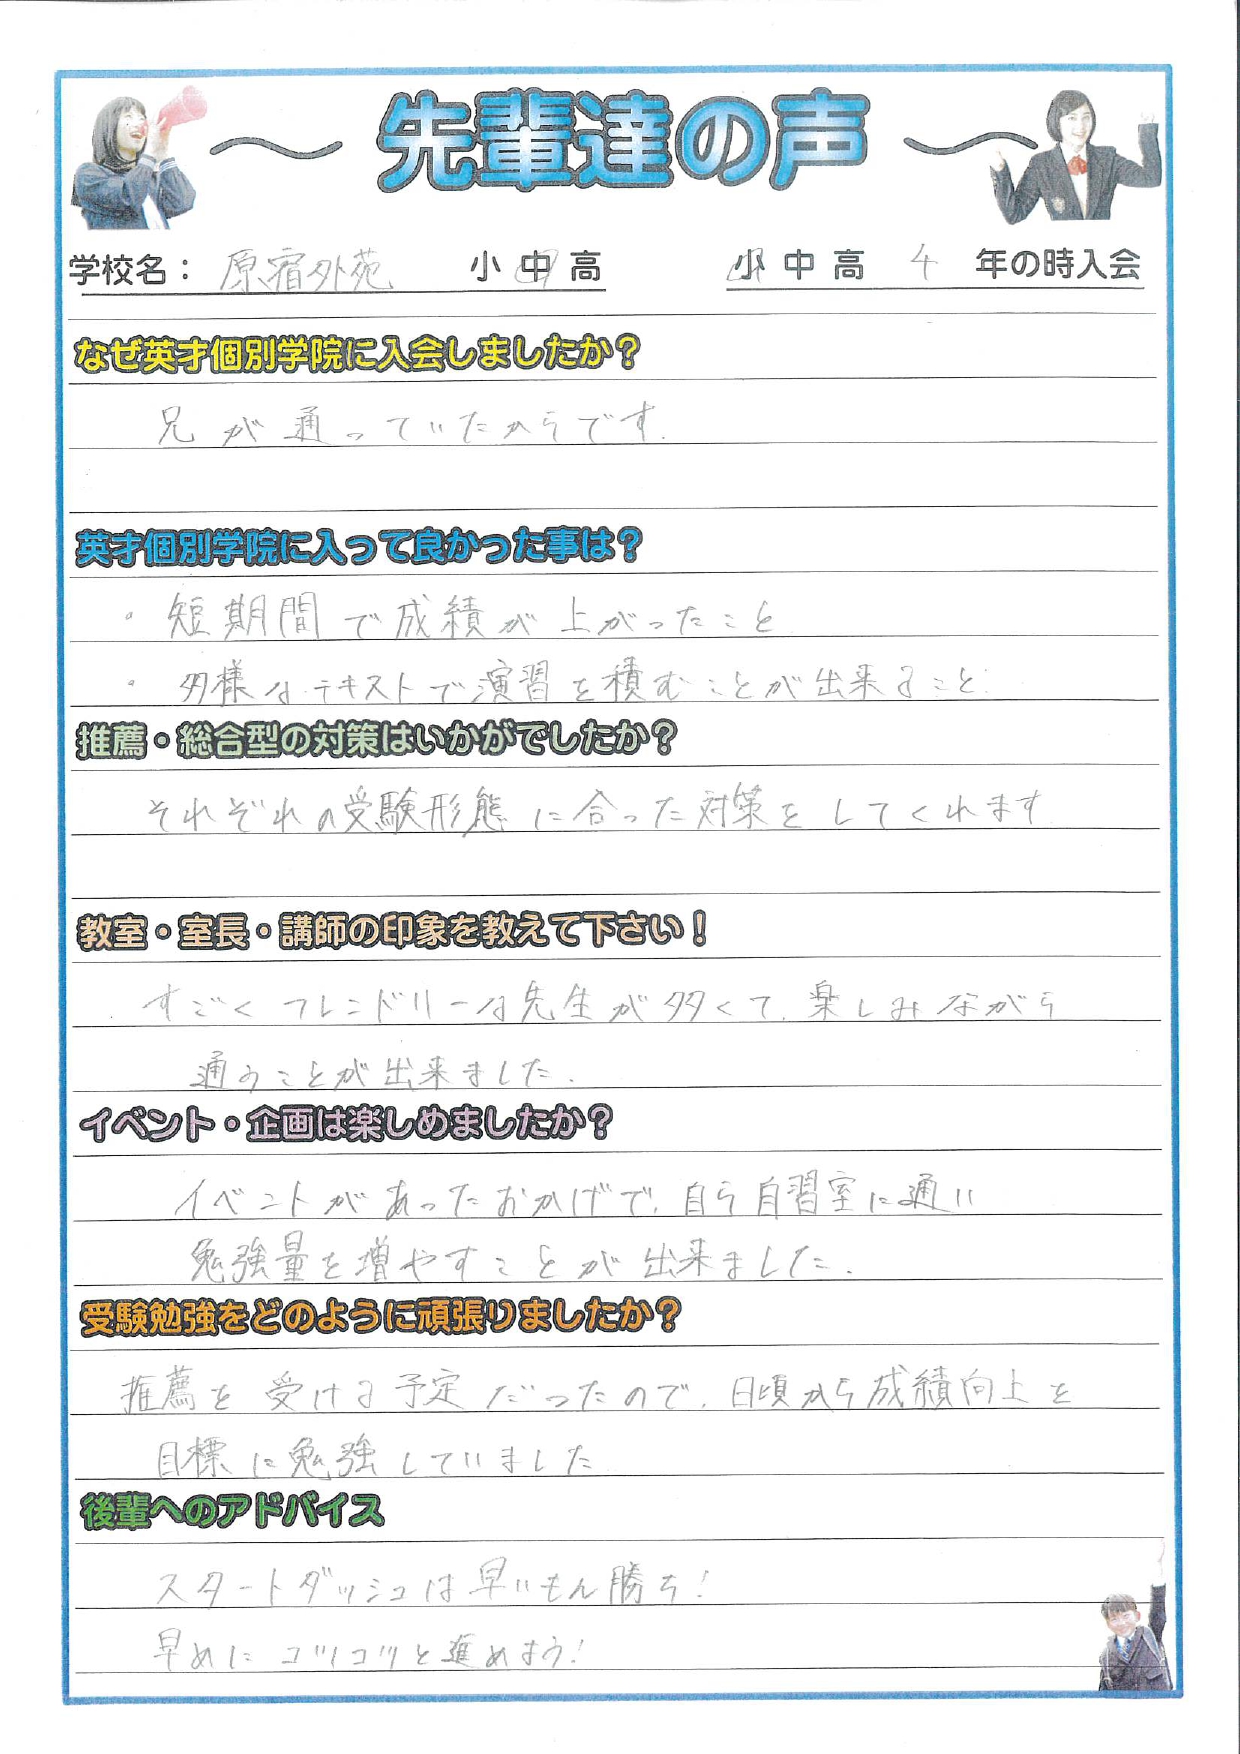 ～先輩達の声～
学校名：原宿外苑 小中高 小中高 4 年の時入会
なぜ英才個別学院に入会しましたか？
兄が通っていたからです。
英才個別学院に入って良かった事は？
・短期間で成績が上がったこと
・多様なテキストで演習を積むことが出来ること。
推薦・総合型の対策はいかがでしたか？
それぞれの受験形態に合った対策をしてくれます
教室・室長・講師の印象を教えて下さい！
すごくフレンドリーな先生が多くて、楽しみながら
通うことが出来ました。
イベント・企画は楽しめましたか？
イベントがあったおかげで、自ら自習室に通い
勉強量を増やすことが出来ました。
受験勉強をどのように頑張りましたか？
推薦を受ける予定だったので、日頃から成績向上を
目標に勉強していました
後輩へのアドバイス
スタートダッシュは早いもん勝ち！
早めにコツコツと進めよう！